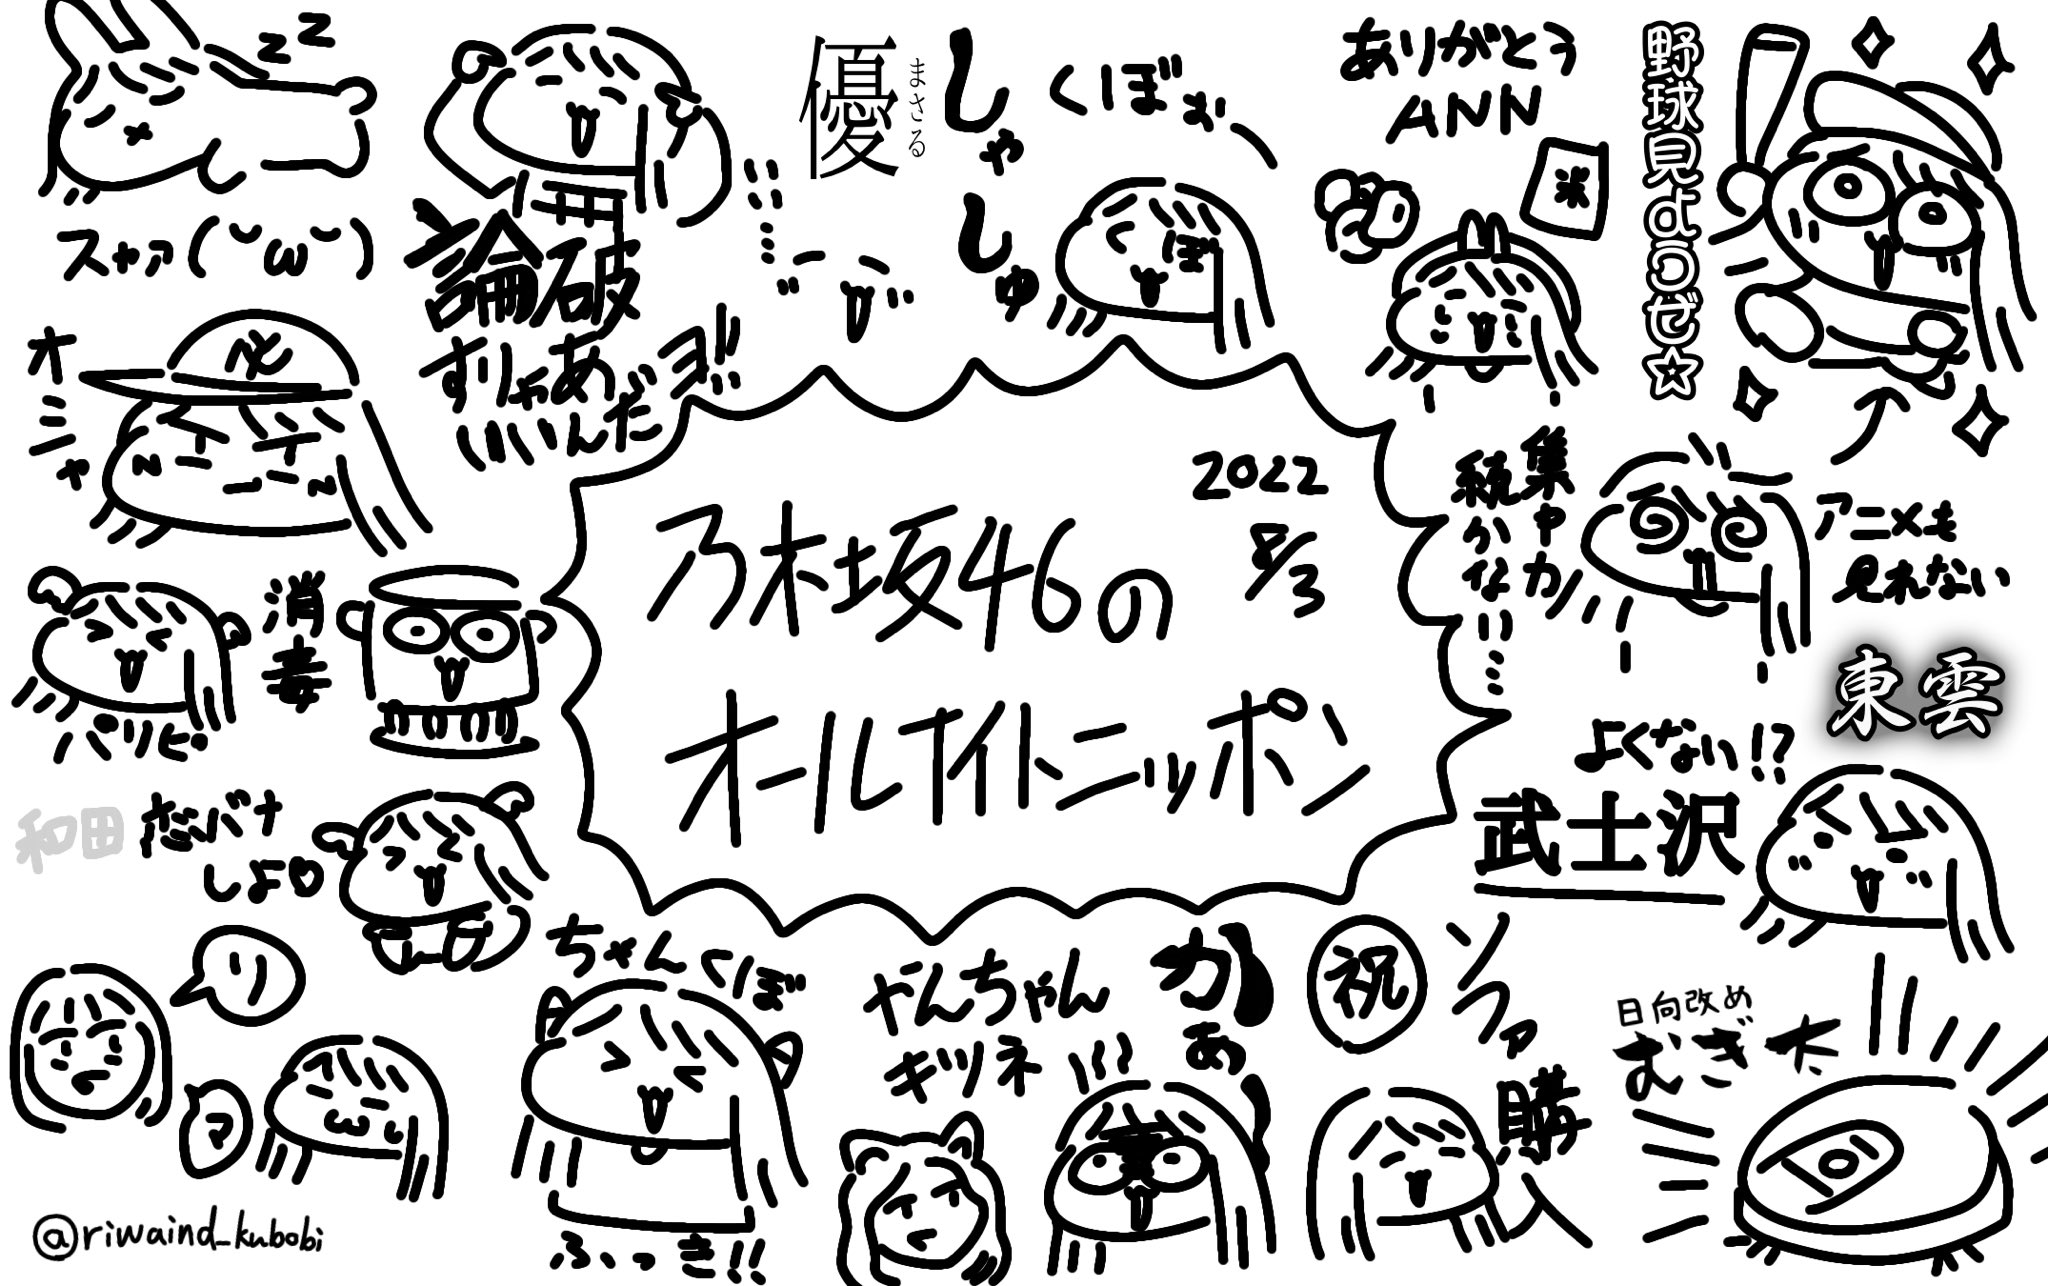 zzz
スヤァ(˘ω˘)
論破
すりゃあ
いいんだヨ!!
優
まさる
しゃ
しゅ
くぼぉ
くぼ
ありがとう
ANN
米
野球見ようぜ☆
オニャ
乃木坂46の
オールナイトニッポン
2022
8/3
集中力
続かな
い…
アニメも
見れない
東雲
よくない!?
武士沢
パリピ
消毒
和田
恋バナ
しよ
リ
マ
ちゃんくぼ
ふっき!!
やんちゃん
キツネ
かぁ
祝
ソファ
購入
日向改め
むぎ大
@riwaind_kubobi